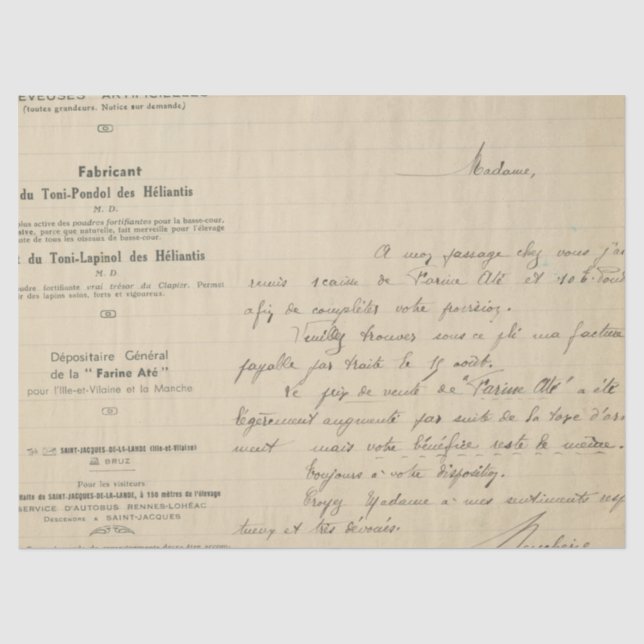 EVEUSES ARTIFICIELLES
(toutes grandeurs. Notice sur demande)
Fabricant
du Toni-Pondol des Héliantis
M. D.
plus active des poudres fortifiantes pour la basse-cour,
sive, parce que naturelle, fait merveille pour l'élevage
ute de tous les oiseaux de basse-cour.
t du Toni-Lapinol des Héliantis
M. D.
oudre fortifiante vrai trésor du Clapier. Permet
ir des lapins sains, forts et vigoureux.
Dépositaire Général
de la "Farine Até"
pour l'Ille-et-Vilaine et la Manche
SAINT-JACQUES-DE-LA-LANDE (Ille-et-Vilaine)
BRUZ
Pour les visiteurs
Halte du SAINT-JACQUES-DE-LA-LANDE, à 150 mètres de l'élevage
SERVICE D'AUTOBUS RENNES-LOHÉAC
DESCENDRE A SAINT-JACQUES
Madame,
A mon passage chez vous j'ai
remis 1 caisse de Farine Até et 10 b. Pond
afin de compléter votre provision.
Veuillez trouver sous ce pli ma facture
payable par traite le 15 août.
Le prix de vente de "Farine Até" a été
légèrement augmenté par suite de la taxe d'ar
ment mais votre bénéfice reste de même.
Toujours à votre disposition.
Croyez Madame à mes sentiments resp
tueux et très dévoués.